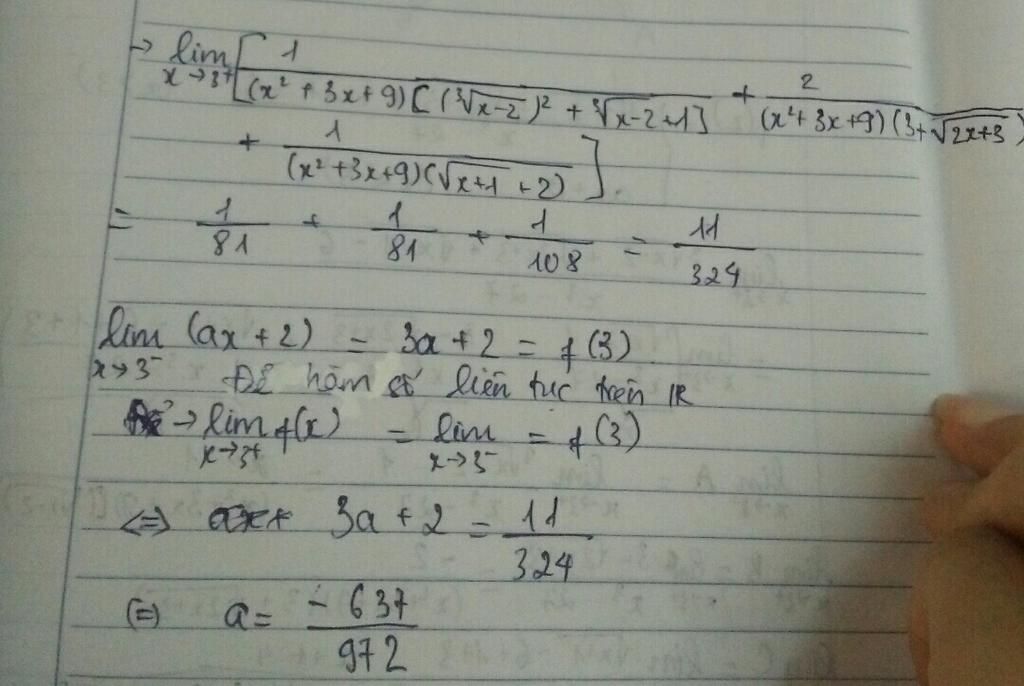 → lim x→3⁺ [ 1/((x² + 3x + 9)[(∛(x-2))² + ∛(x-2) + 1]) + 2/((x² + 3x + 9)(3 + √(2x+3)))
+ 1/((x² + 3x + 9)(√(x+1) + 2)) ].
= 1/81 + 1/81 + 1/108 = 11/324
lim x→3⁻ (ax + 2) = 3a + 2 = f(3)
Để hàm số liên tục trên R
→ lim x→3⁺ f(x) = lim x→3⁻ = f(3)
<=> 3a + 2 = 11/324
(=) a = -637/972